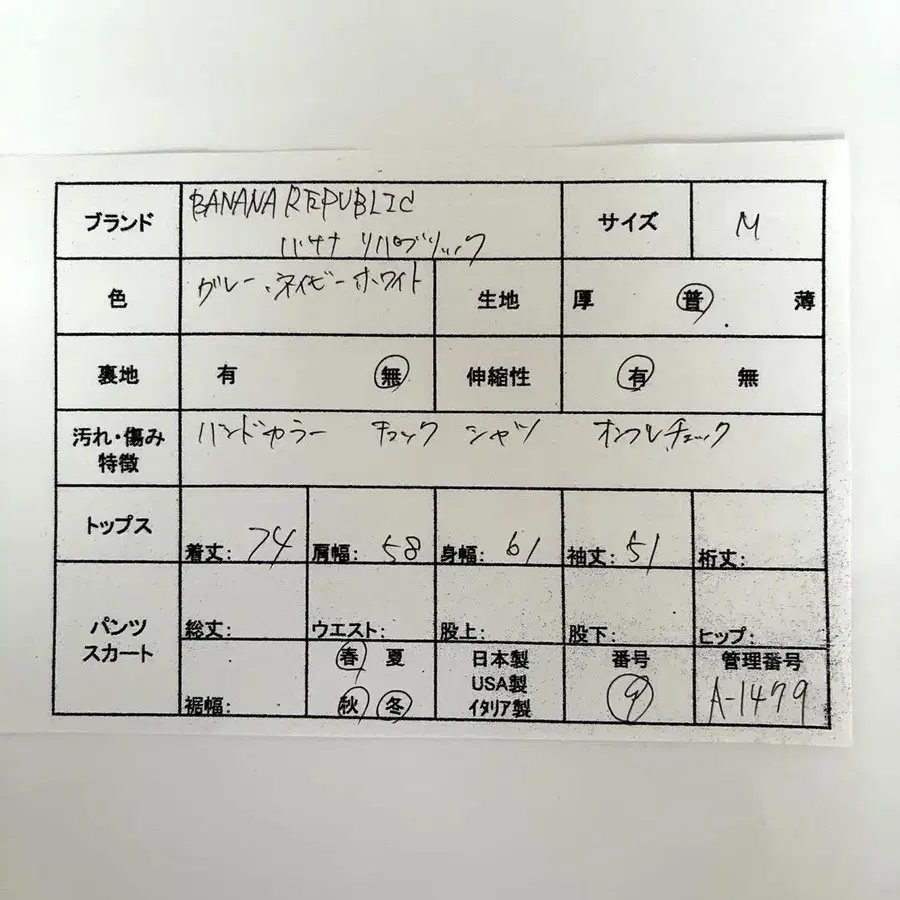 ブランド BANANA REPUBLIC サイズ M
バナナ リパブリック
色 グレー・ネイビーホワイト 生地 厚 普 薄
裏地 有 無 伸縮性 有 無
汚れ・傷み バンドカラー チェック シャツ チェック
特徴
トップス 着丈: 74 肩幅: 58 身幅: 61 袖丈: 51 裄丈:
パンツ 総丈: ウエスト: 股上: 股下: ヒップ:
スカート 裾幅: 春 夏 日本製 番号 管理番号
USA製
秋 冬 イタリア製 9 A-1479